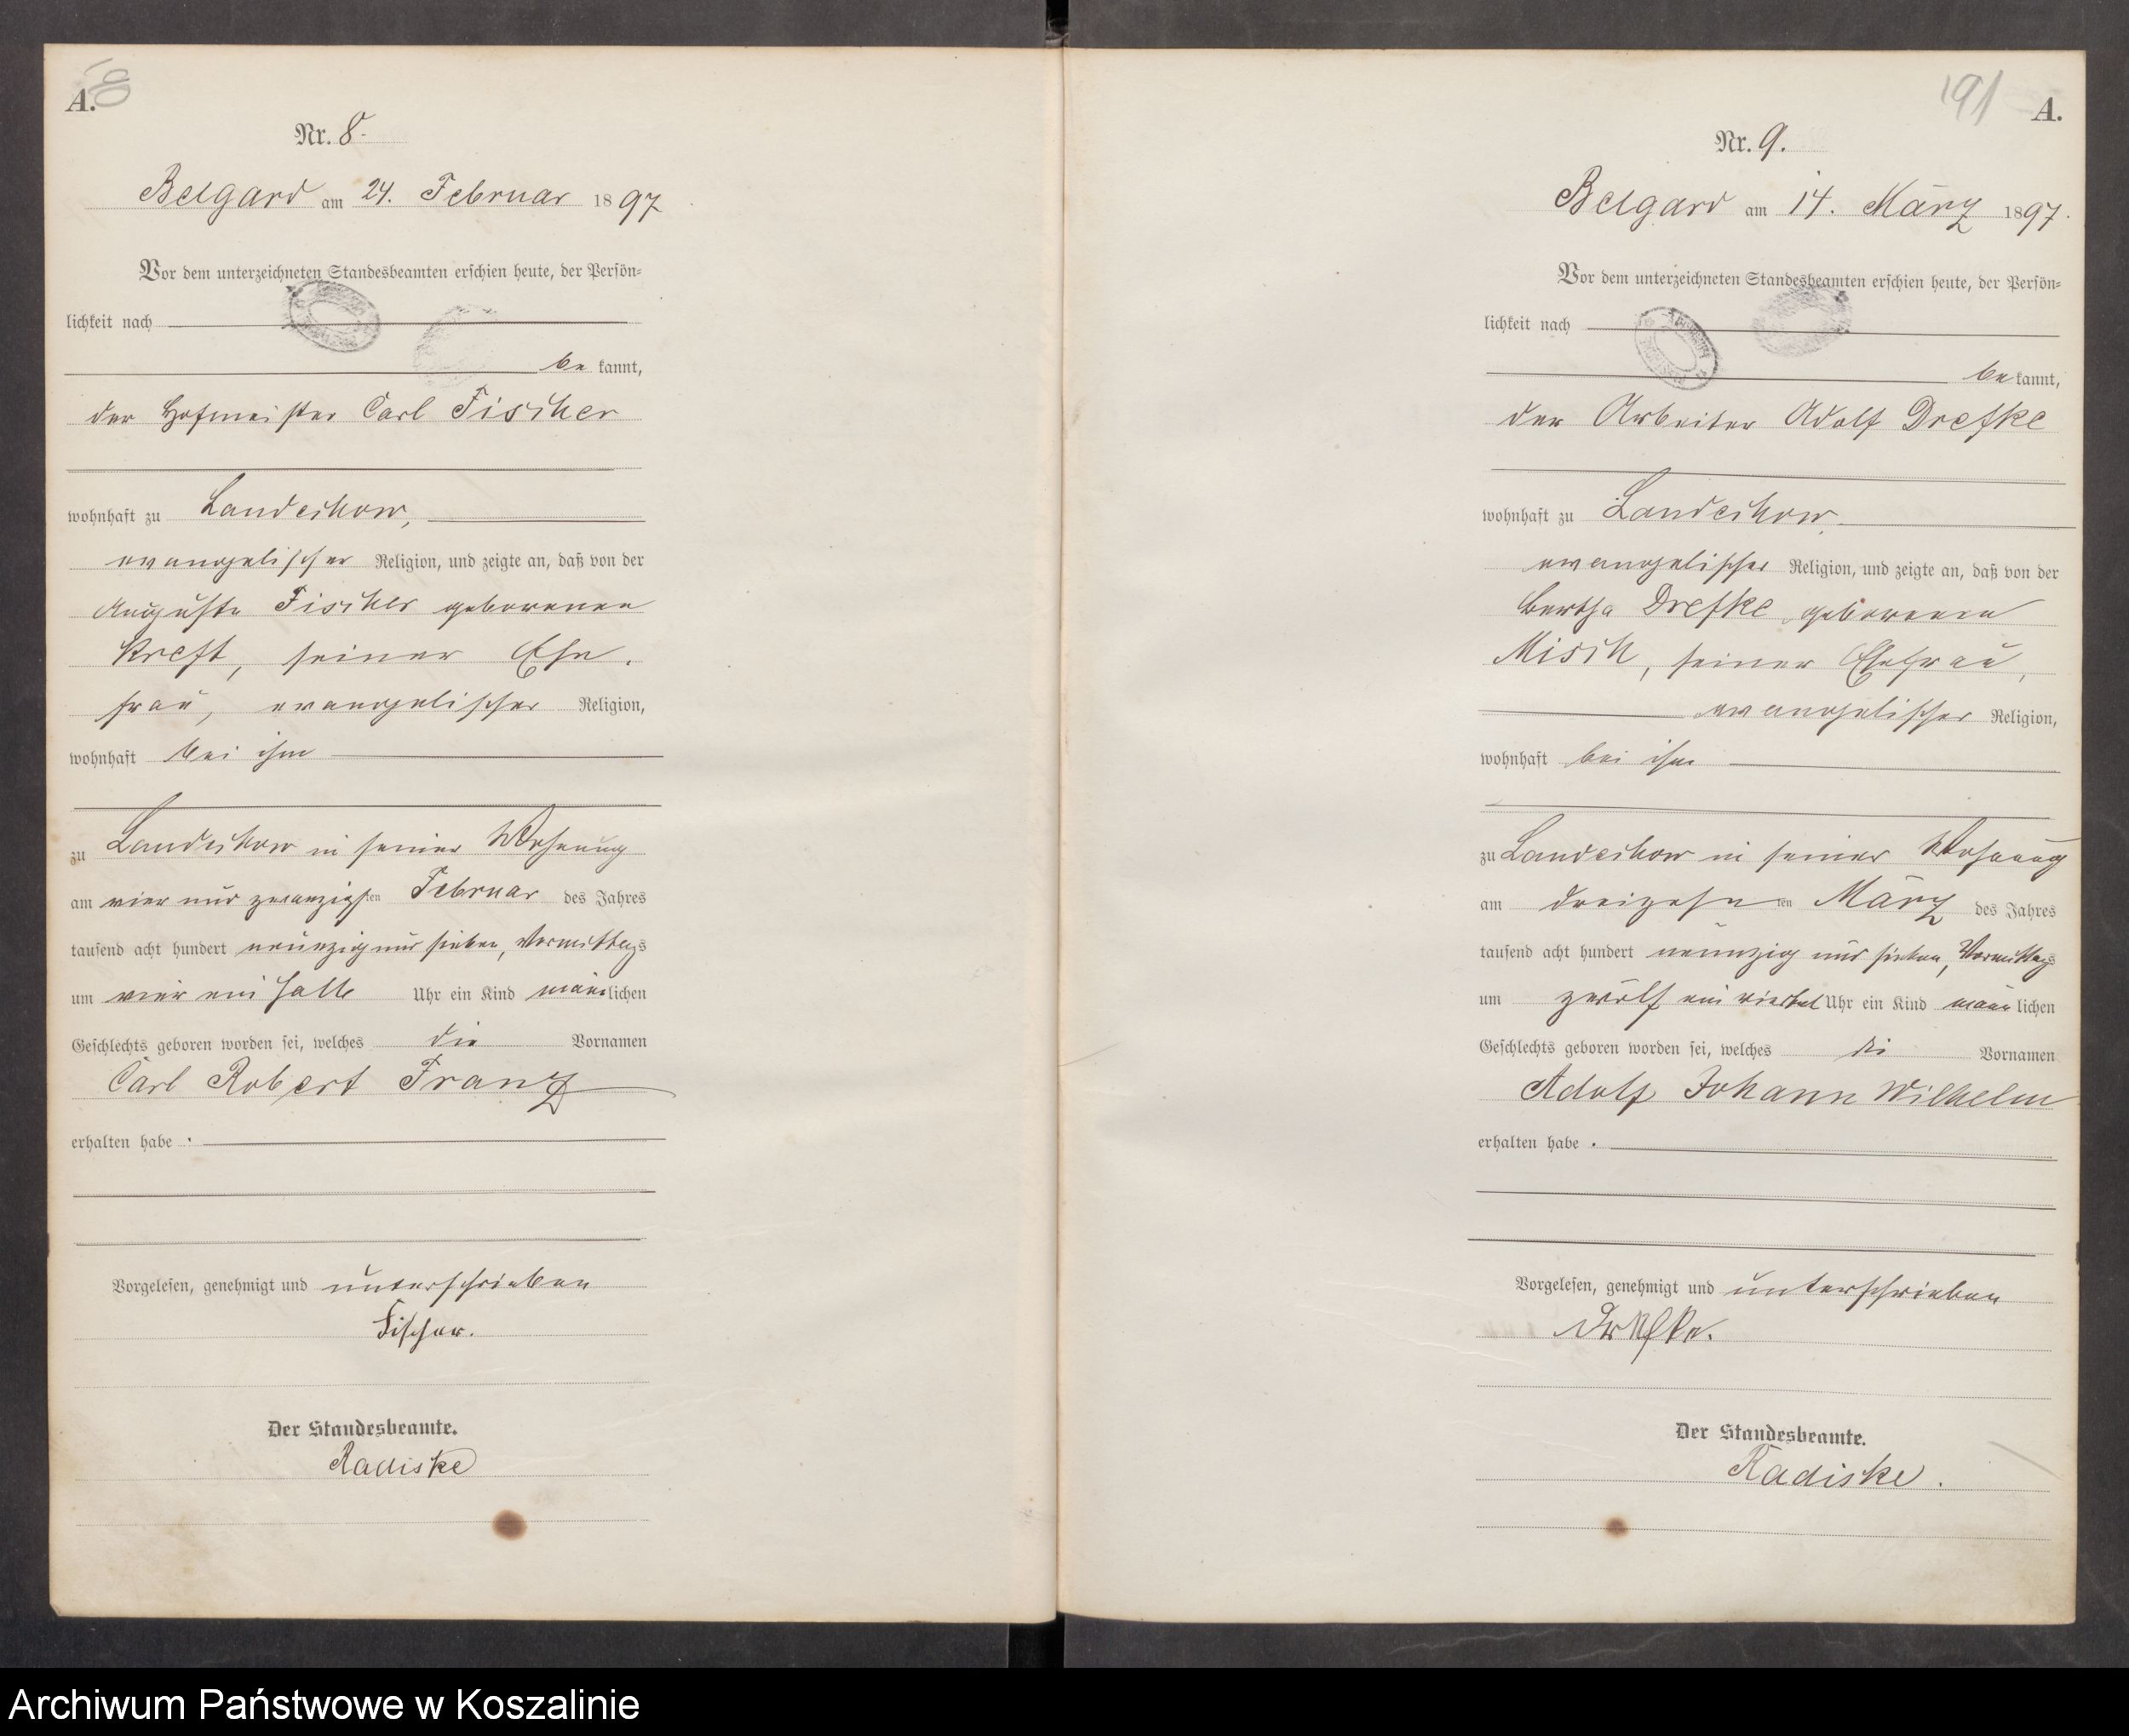 A.
Nr. 8.
Belgard am 24. Februar 1897
Vor dem unterzeichneten Standesbeamten erschien heute, der Persön-
lichkeit nach
be kannt,
der Hofmeister Carl Fischer
wohnhaft zu Landechow,
evangelischer Religion, und zeigte an, daß von der
Auguste Fischer geborenen
Kreft, seiner Ehe-
frau, evangelischer Religion,
wohnhaft bei ihm
zu Landechow in seiner Wohnung
am vier und zwanzigsten Februar des Jahres
tausend acht hundert neunzig und sieben, Vormittags
um vier ein halb Uhr ein Kind männlichen
Geschlechts geboren worden sei, welches die Vornamen
Carl Robert Franz
erhalten habe.
Vorgelesen, genehmigt und unterschrieben
Fischer.
Der Standesbeamte.
Radiske
191
A.
Nr. 9.
Belgard am 14. März 1897.
Vor dem unterzeichneten Standesbeamten erschien heute, der Persön-
lichkeit nach
be kannt,
der Arbeiter Adolf Drefke
wohnhaft zu Landechow,
evangelischer Religion, und zeigte an, daß von der
Bertha Drefke, geborenen
Misch, seiner Ehefrau,
evangelischer Religion,
wohnhaft bei ihm
zu Landechow in seiner Wohnung
am dreizehnten März des Jahres
tausend acht hundert neunzig und sieben, Vormittags
um zwölf ein viertel Uhr ein Kind männlichen
Geschlechts geboren worden sei, welches die Vornamen
Adolf Johann Wilhelm
erhalten habe.
Vorgelesen, genehmigt und unterschrieben
Drefke.
Der Standesbeamte.
Radiske.
Archiwum Państwowe w Koszalinie